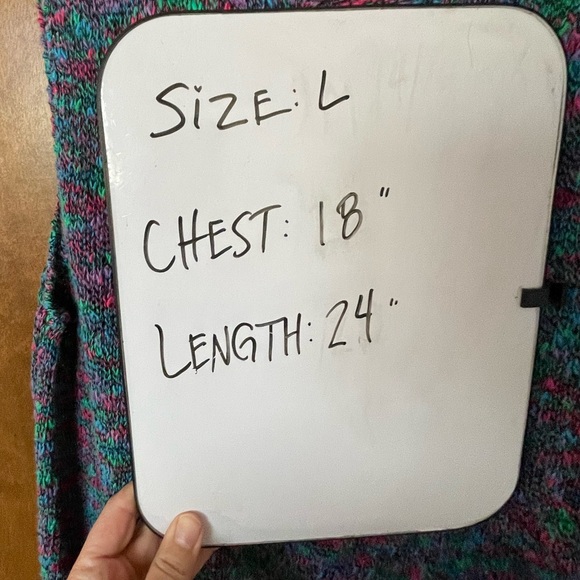 SiZE: L
CHEST: 18"
LENGTH: 24"